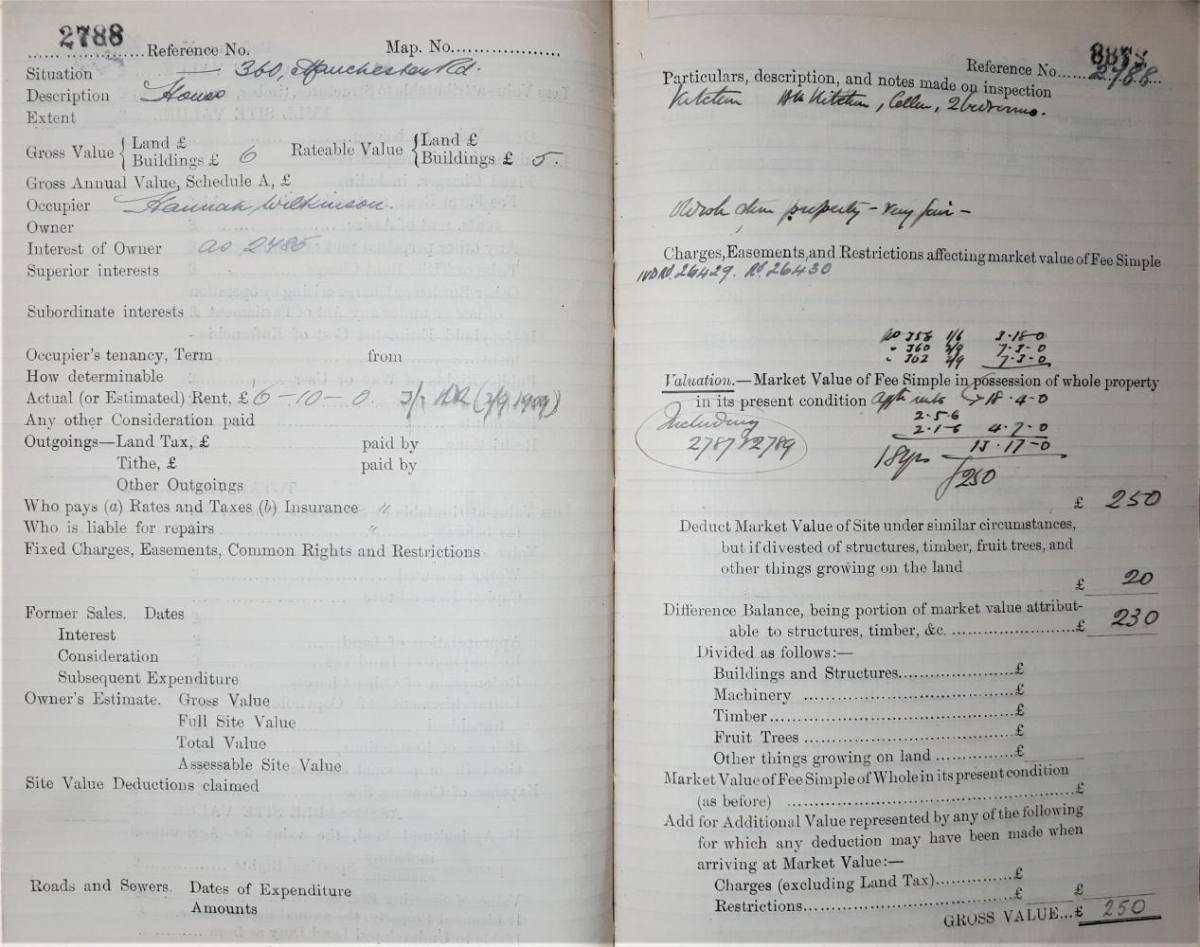 2788
Reference No. Map. No.
Situation 360, Manchester Rd.
Description House
Extent
Gross Value { Land £
Buildings £ 6
Rateable Value { Land £
Buildings £ 5.
Gross Annual Value, Schedule A, £
Occupier Hannah Wilkinson.
Owner
Interest of Owner as 2785
Superior interests
Subordinate interests
Occupier's tenancy, Term from
How determinable
Actual (or Estimated) Rent, £ 6-10-0.
Any other Consideration paid
Outgoings—Land Tax, £ paid by
Tithe, £ paid by
Other Outgoings
Who pays (a) Rates and Taxes (b) Insurance "
Who is liable for repairs "
Fixed Charges, Easements, Common Rights and Restrictions
Former Sales. Dates
Interest
Consideration
Subsequent Expenditure
Owner's Estimate. Gross Value
Full Site Value
Total Value
Assessable Site Value
Site Value Deductions claimed
Roads and Sewers. Dates of Expenditure
Amounts
Reference No. 2788
Particulars, description, and notes made on inspection
Kitchen Kitchen, Cellar, 2 bedrooms.
property - very fair -
Charges, Easements, and Restrictions affecting market value of Fee Simple
26429. 26430
356 1/6 3-18-0
" 360 2/9 7-3-0
" 362 2/9 7-3-0
Valuation.—Market Value of Fee Simple in possession of whole property
in its present condition 18-4-0
Including
2787 & 2789
2-5-6
2-1-6 4-7-0
18 yrs 13-17-0
£250
£ 250
Deduct Market Value of Site under similar circumstances,
but if divested of structures, timber, fruit trees, and
other things growing on the land
£ 20
Difference Balance, being portion of market value attribut-
able to structures, timber, &c. £ 230
Divided as follows:—
Buildings and Structures £
Machinery £
Timber £
Fruit Trees £
Other things growing on land £
Market Value of Fee Simple of Whole in its present condition
(as before) £
Add for Additional Value represented by any of the following
for which any deduction may have been made when
arriving at Market Value:—
Charges (excluding Land Tax) £
Restrictions £ £
GROSS VALUE...£ 250